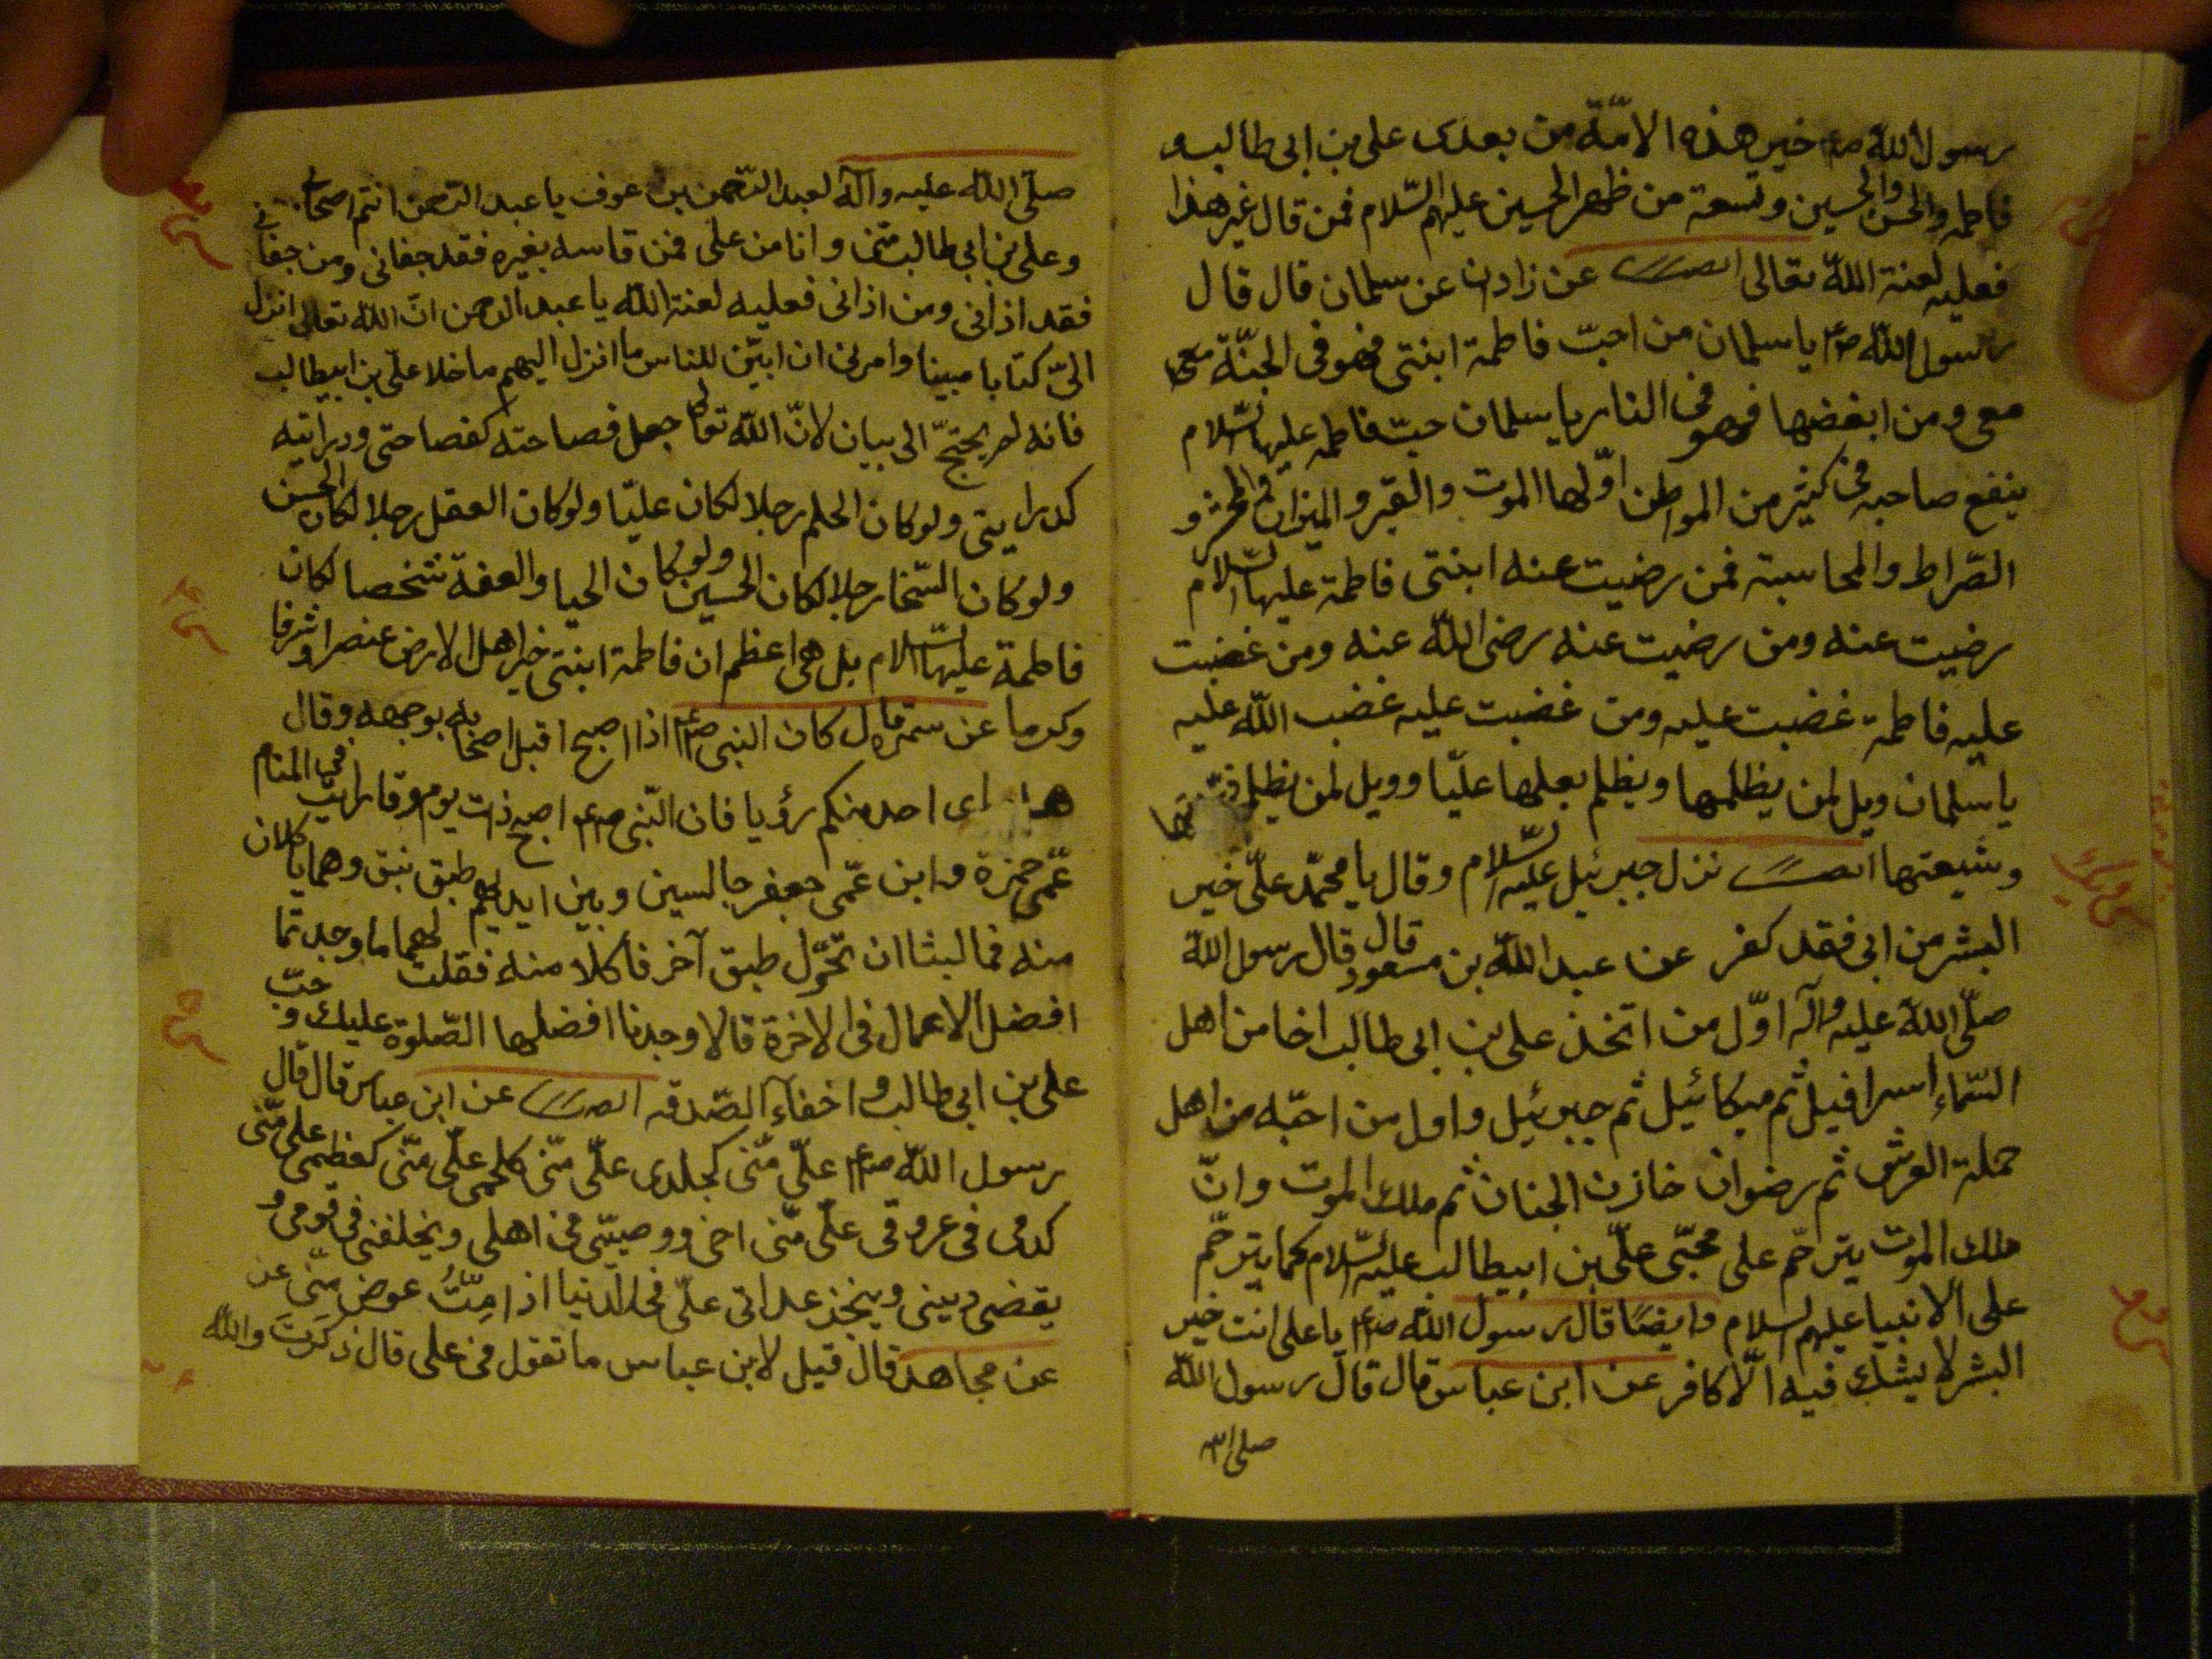 رسول الله صلعم خير هذه الامّة من بعدى على بن ابى طالب و
فاطمه والحسن والحسين وتسعة من ظهر الحسين عليهم السّلام فمن قال غير هذا
فعليه لعنة الله تعالى عن زادان عن سلمان قال قال
رسول الله صلعم يا سلمان من احبّ فاطمة ابنتى فهو فى الجنّة معى
معى ومن ابغضها فهو فى النار يا سلمان حبّ فاطمه عليها السّلام
ينفع صاحبه فى كثير من المواطن اوّلها الموت والقبر والميزان والمحشر و
الصّراط والمحاسبة فمن رضيت عنه ابنتى فاطمة عليها السّلام
رضيت عنه ومن رضيت عنه رضى الله عنه ومن غضبت
عليه فاطمة غضبت عليه ومن غضبت عليه غضب الله عليه
يا سلمان ويل لمن يظلمها ويظلم بعلها عليّا وويل لمن يظلم ذرّيّتها
وشيعتها نزل جبرئيل عليه السّلام وقال يا محمّد علىّ خير
البشر من ابى فقد كفر عن عبد الله بن مسعود قال قال رسول الله
صلّى الله عليه وآله اوّل من اتخذ على بن ابى طالب اخا من اهل
السّماء اسرافيل ثم ميكائيل ثم جبرئيل واول من احبّه من اهل
حملة العرش ثم رضوان خازن الجنان ثم ملك الموت وانّ
ملك الموت يترحّم على محبّى علىّ بن ابيطالب عليه السّلام كما يترحّم
على الانبيا عليهم السلام وايضًا قال رسول الله صلعم يا على انت خير
البشر لا يشك فيه الّا كافر عن ابن عباس قال قال رسول الله
صلى الله
صلّى الله عليه وآله لعبد الرّحمن بن عوف يا عبد الرّحمن انتم اصحابى
وعلى بن ابى طالب منّى وانا من على فمن قاسه بغيره فقد جفانى ومن جفانى
فقد اذانى ومن اذانى فعليه لعنة الله يا عبد الرحمن انّ الله تعالى انزل
الىّ كتابا مبينا وامرنى ان ابيّن للناس ما انزل اليهم ما خلا علىّ بن ابيطالب
فانه لم يحتجّ الى بيان لانّ الله تعالى جعل فصاحته كفصاحتى ودرايته
كدرايتى ولو كان الحلم رجلا لكان عليّا ولو كان العقل رجلا لكان الحسن
ولو كان السّخا رجلا لكان الحسين ولو كان الحيا والعفة شخصا لكان
فاطمة عليها السّلام بل هى اعظم ان فاطمة ابنتى خير اهل الارض عنصرا وشرفا
وكرما عن سمرة قال كان النبى صلعم اذا اصبح اقبل اصحابه بوجهه وقال
هل راى احد منكم رؤيا فان النّبى صلعم اصبح ذات يوم وقال رايت فى المنام
عمّى حمزة وابن عمّى جعفر جالسين وبين ايديهم طبق نبق وهما ياكلان
منه فما لبثا ان تحوّل طبق آخر فاكلا منه فقلت لهما ما وجدتما
افضل الاعمال فى الاخرة قالا وجدنا افضلها الصّلوة عليك وحبّ
على بن ابى طالب و اخفاء الصّدقه عن ابن عباس قال قال
رسول الله صلعم علىّ منّى كجلدى علىّ منّى كلحمى علىّ منّى كعظمى على منّى
كدمى فى عروقى علىّ منّى اخى ووصيّى فى اهلى ويخلفنى فى قومى و
يقضى دينى وينجز عداتى علىّ فى الدنيا اذا متُّ عوض منّى عن
عن مجاهد قال قيل لابن عباس ما تقول فى على قال ذكرتَ والله